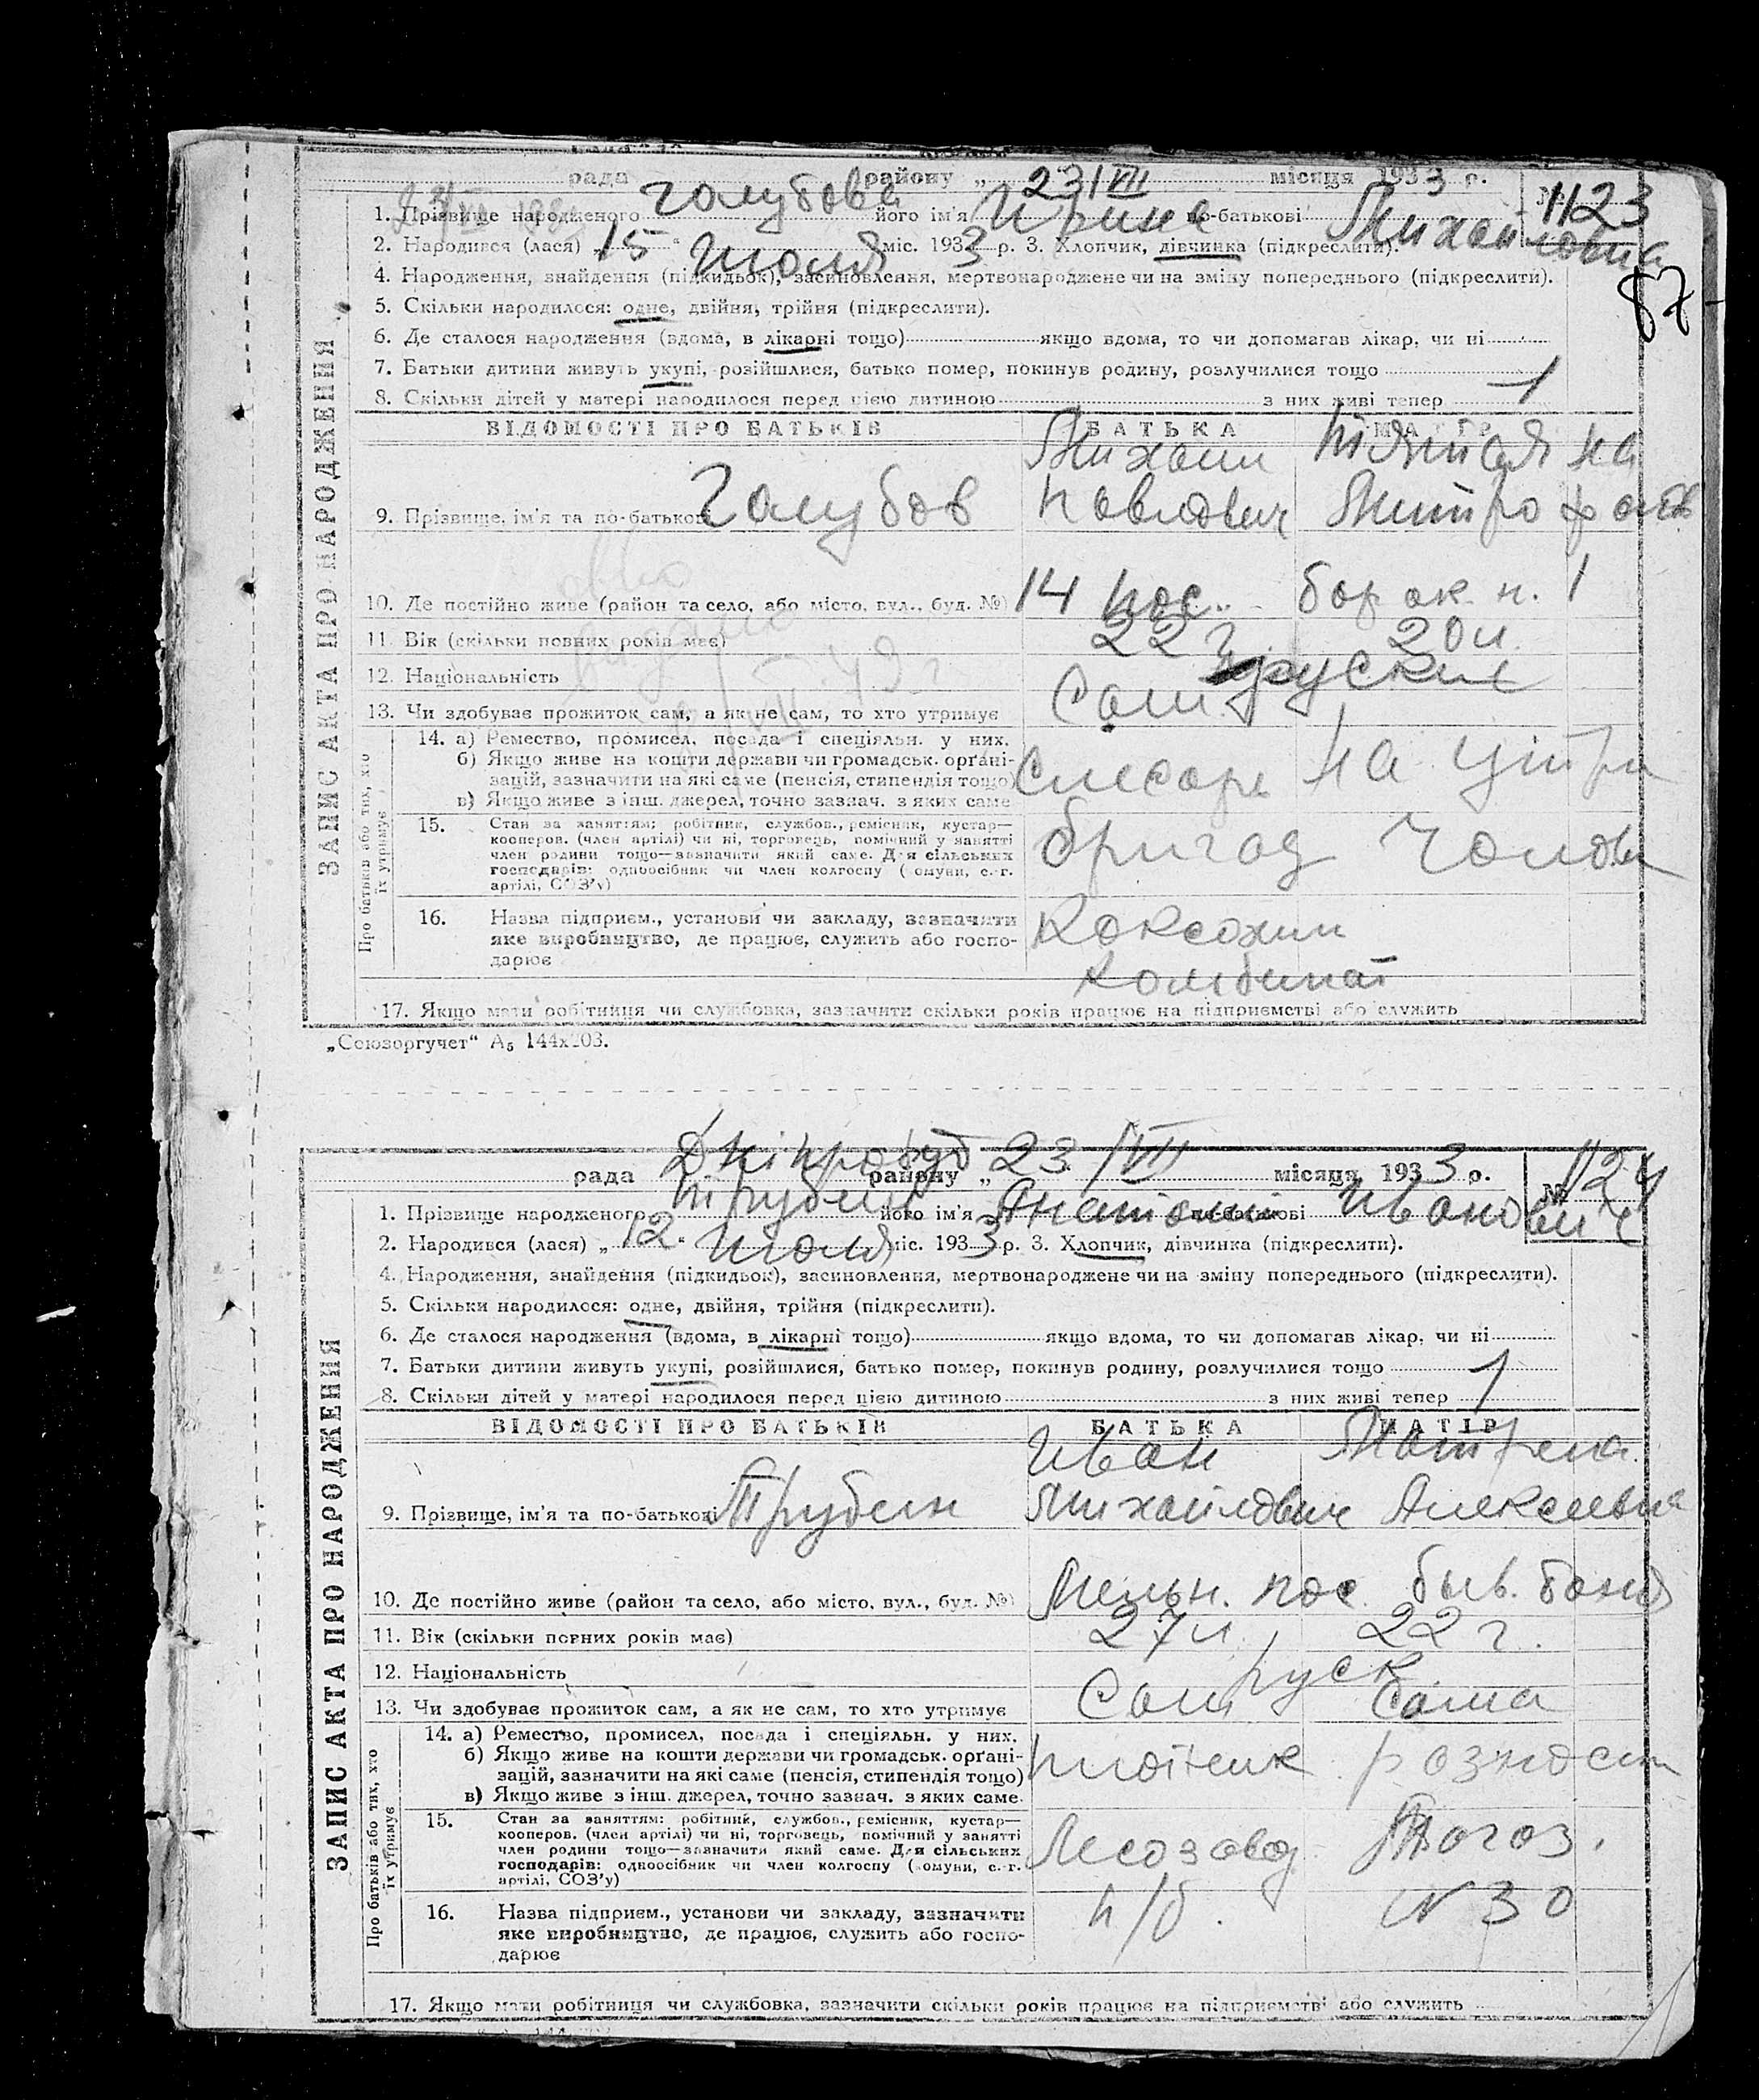 рада района „ 23/VII місяця 1933 р. № 1123
1. Прізвище народженого Голубова його ім'я Ирина по-батькові Михайловна
2. Народився (лася) „15“ Июля міс. 1933 р. 3. Хлопчик, дівчинка (підкреслити).
87
4. Народження, знайдення (підкидьок), засиновлення, мертвонароджене чи на зміну попереднього (підкреслити).
5. Скільки народилося: одне, двійня, трійня (підкреслити).
6. Де сталося народження (вдома, в лікарні тощо) якщо вдома, то чи допомагав лікар, чи ні
7. Батьки дитини живуть укупі, розійшлися, батько помер, покинув родину, розлучилися тощо
8. Скільки дітей у матері народилося перед цією дитиною з них живі тепер 1
ВІДОМОСТІ ПРО БАТЬКІВ БАТЬКА МАТІР
Михаил
9. Прізвище, ім'я та по-батькові Голубов Павлович
10. Де постійно живе (район та село, або місто, вул., буд. №) 14 пос. 1
11. Вік (скільки повних років має) 22 г. 20 л.
12. Національність руские
13. Чи здобуває прожиток сам, а як не сам, то хто утримує Сам
ЗАПИС АКТА ПРО НАРОДЖЕННЯ
Про батьків або тих, хто їх утримує
14. а) Ремество, промисел, посада і спеціяльн. у них.
б) Якщо живе на кошти держави чи громадськ. орґані-
зацій, зазначити на які саме (пенсія, стипендія тощо) слесарь на утри
в) Якщо живе з інш. джерел, точно зазнач. з яких саме
15. Стан за заняттям: робітник, службов., ремісник, кустар—
кооперов. (член артілі) чи ні, торговець, помічний у занятті
член родини тощо—зазначити який саме. Для сільських
господарів: одноосібник чи член колгоспу (комуни, с.-г.
артілі, СОЗ'у) бригад чолов
16. Назва підприєм., установи чи закладу, зазначити
яке виробництво, де працює, служить або госпо-
дарює Коксохим
Комбинат
17. Якщо мати робітниця чи службовка, зазначити скільки років працює на підприємстві або служить
„Союзоргучет“ А₅ 144х203.
рада Дніпробуд району „ 23/VII місяця 1933 р. № 1124
1. Прізвище народженого Трубин його ім'я Анатолий по-батькові Иванович
2. Народився (лася) „12“ Июля міс. 1933 р. 3. Хлопчик, дівчинка (підкреслити).
4. Народження, знайдення (підкидьок), засиновлення, мертвонароджене чи на зміну попереднього (підкреслити).
5. Скільки народилося: одне, двійня, трійня (підкреслити).
6. Де сталося народження (вдома, в лікарні тощо) якщо вдома, то чи допомагав лікар, чи ні
7. Батьки дитини живуть укупі, розійшлися, батько помер, покинув родину, розлучилися тощо
8. Скільки дітей у матері народилося перед цією дитиною з них живі тепер 1
ВІДОМОСТІ ПРО БАТЬКІВ БАТЬКА МАТІР
Иван Матрена
9. Прізвище, ім'я та по-батькові Трубин Михайлович Алексеевна
10. Де постійно живе (район та село, або місто, вул., буд. №) Мельн. пос. быв. баня
11. Вік (скільки повних років має) 27 л. 22 г.
12. Національність руск
13. Чи здобуває прожиток сам, а як не сам, то хто утримує Сам Сама
ЗАПИС АКТА ПРО НАРОДЖЕННЯ
Про батьків або тих, хто їх утримує
14. а) Ремество, промисел, посада і спеціяльн. у них.
б) Якщо живе на кошти держави чи громадськ. орґані-
зацій, зазначити на які саме (пенсія, стипендія тощо) плотник
в) Якщо живе з інш. джерел, точно зазнач. з яких саме.
15. Стан за заняттям: робітник, службов., ремісник, кустар—
кооперов. (член артілі) чи ні, торговець, помічний у занятті
член родини тощо—зазначити який саме. Для сільських
господарів: одноосібник чи член колгоспу (комуни, с.-г.
артілі, СОЗ'у) Лесозавод Магаз.
16. Назва підприєм., установи чи закладу, зазначити
яке виробництво, де працює, служить або госпо-
дарює №30
17. Якщо мати робітниця чи службовка, зазначити скільки років працює на підприємстві або служить